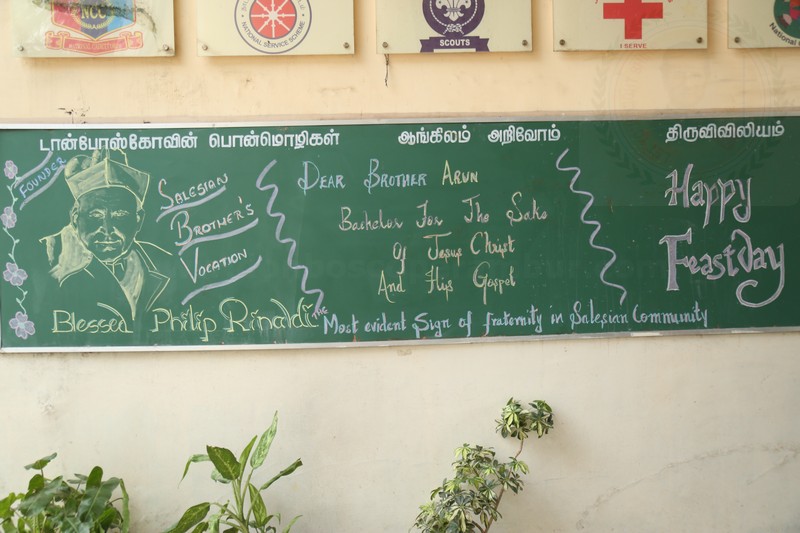 NCC
NATIONAL SERVICE SCHEME
SCOUTS
I SERVE
டான்போஸ்கோவின் பொன்மொழிகள்
ஆங்கிலம் அறிவோம்
திருவிவிலியம்
FOUNDER
SALESIAN
BROTHER'S
VOCATION
Blessed Philip Rinaldi
DEAR BROTHER ARUN
Bachelor For The Sake
Of Jesus Christ
And His Gospel
The Most evident Sign of fraternity in Salesian Community
Happy
Feast Day